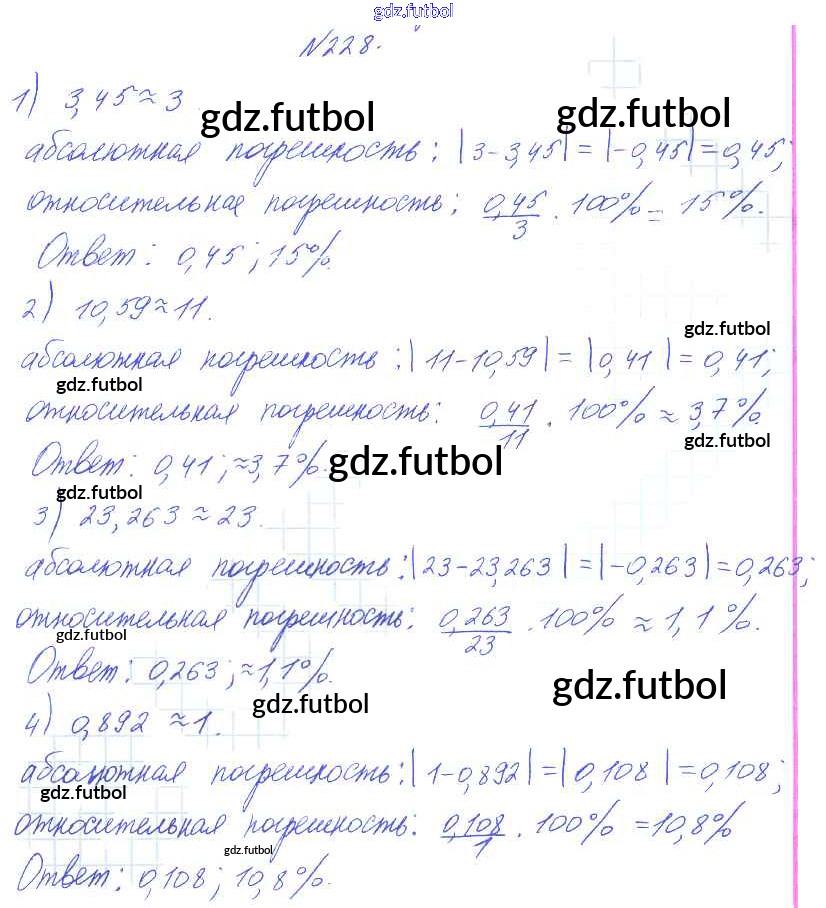 gdz.futbol
№228.
1) 3,45≈3
gdz.futbol gdz.futbol
абсолютная погрешность: |3-3,45|=|-0,45|=0,45;
относительная погрешность: 0,45/3 · 100% = 15%.
Ответ: 0,45; 15%.
2) 10,59≈11.
gdz.futbol
абсолютная погрешность: |11-10,59|=|0,41|=0,41;
gdz.futbol
относительная погрешность: 0,41/11 · 100% ≈ 3,7%.
gdz.futbol
Ответ: 0,41; ≈3,7%.
gdz.futbol
gdz.futbol
3) 23,263≈23.
абсолютная погрешность: |23-23,263|=|-0,263|=0,263;
относительная погрешность: 0,263/23 · 100% ≈ 1,1%.
gdz.futbol
Ответ: 0,263; ≈1,1%.
gdz.futbol
gdz.futbol
4) 0,892≈1.
абсолютная погрешность: |1-0,892|=|0,108|=0,108;
gdz.futbol
относительная погрешность: 0,108/1 · 100% = 10,8%
gdz.futbol
Ответ: 0,108; 10,8%.